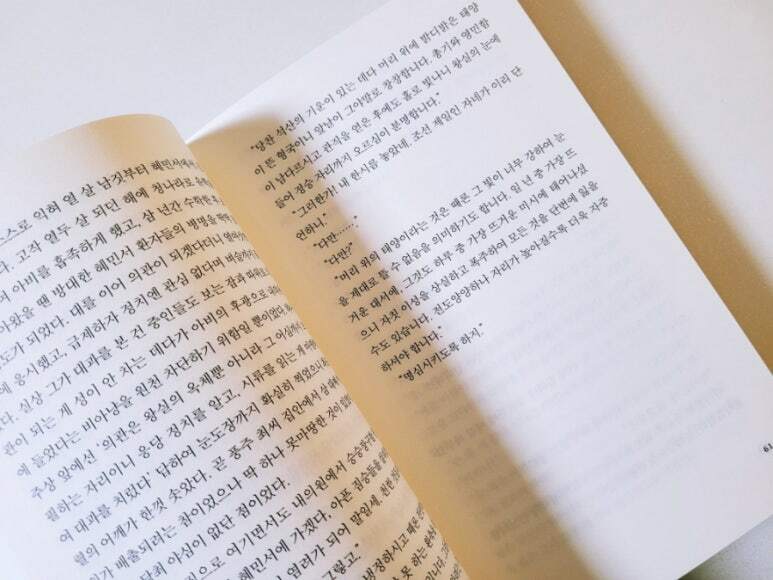 스로 익혀 열 살 남짓부터 혜민서에
다. 고작 열두 살 되던 해에 청나라로
며 아비를 흡족하게 했고, 삼 년간 수학한
아왔을 땐 방대한 혜민서 환자들의 병명을
도가 되었다. 대를 이어 의관이 되겠다더니
에 응시했고, 급제하자 정치엔 관심 없다며
다. 실상 그가 대과를 본 건 중인들도 보는 잡과 따위
관이 되는 게 성이 안 차는 데다가 아비의 후광으로
에 들었다는 비아냥을 원천 차단하기 위함일 뿐이었다.
주상 앞에선 '의관은 왕실의 옥체뿐 아니라 그
핌하는 자리이니 응당 정치를 알고, 시류를 읽는 게
여 대과를 치렀다' 답하여 눈도장까지 확실히 찍었으니
월의 어깨가 한껏 솟았다. 곧 풍주 최씨 집안에서
가 배출되려는 참이었으나 딱 하나 못마땅한 것이
당최 야심이 없단 점이었다.
으로 여기면서도 내의원에서
혜민서에 가겠다, 아픈 짐승들을
염려가 되어 말일세.
그렇고."
"당찬 석산의 기운이 있는 데다 머리 위에 밝디밝은 태양
이 뜬 형국이니 앞날이 그야말로 창창합니다. 총기와 영민함
이 남다르시고 관직을 얻은 후에도 홀로 빛나니 왕실의 눈에
들어 정승 자리까지 오르심이 분명합니다."
"그러한가! 내 한시름 놓았네. 조선 제일인 자네가 이리 단
언하니."
"다만……."
"다만?"
"머리 위의 태양이라는 것은 때론 그 빛이 너무 강하여 눈
을 제대로 뜰 수 없음을 의미하기도 합니다. 일 년 중 가장 뜨
거운 대서에, 그것도 하루 중 가장 뜨거운 미시에 태어나셨
으니 자칫 이성을 상실하고 폭주하여 모든 것을 단번에 잃을
수도 있습니다. 전도양양하나 자리가 높아질수록 더욱 자중
하셔야 합니다."
"명심시키도록 하지."
61